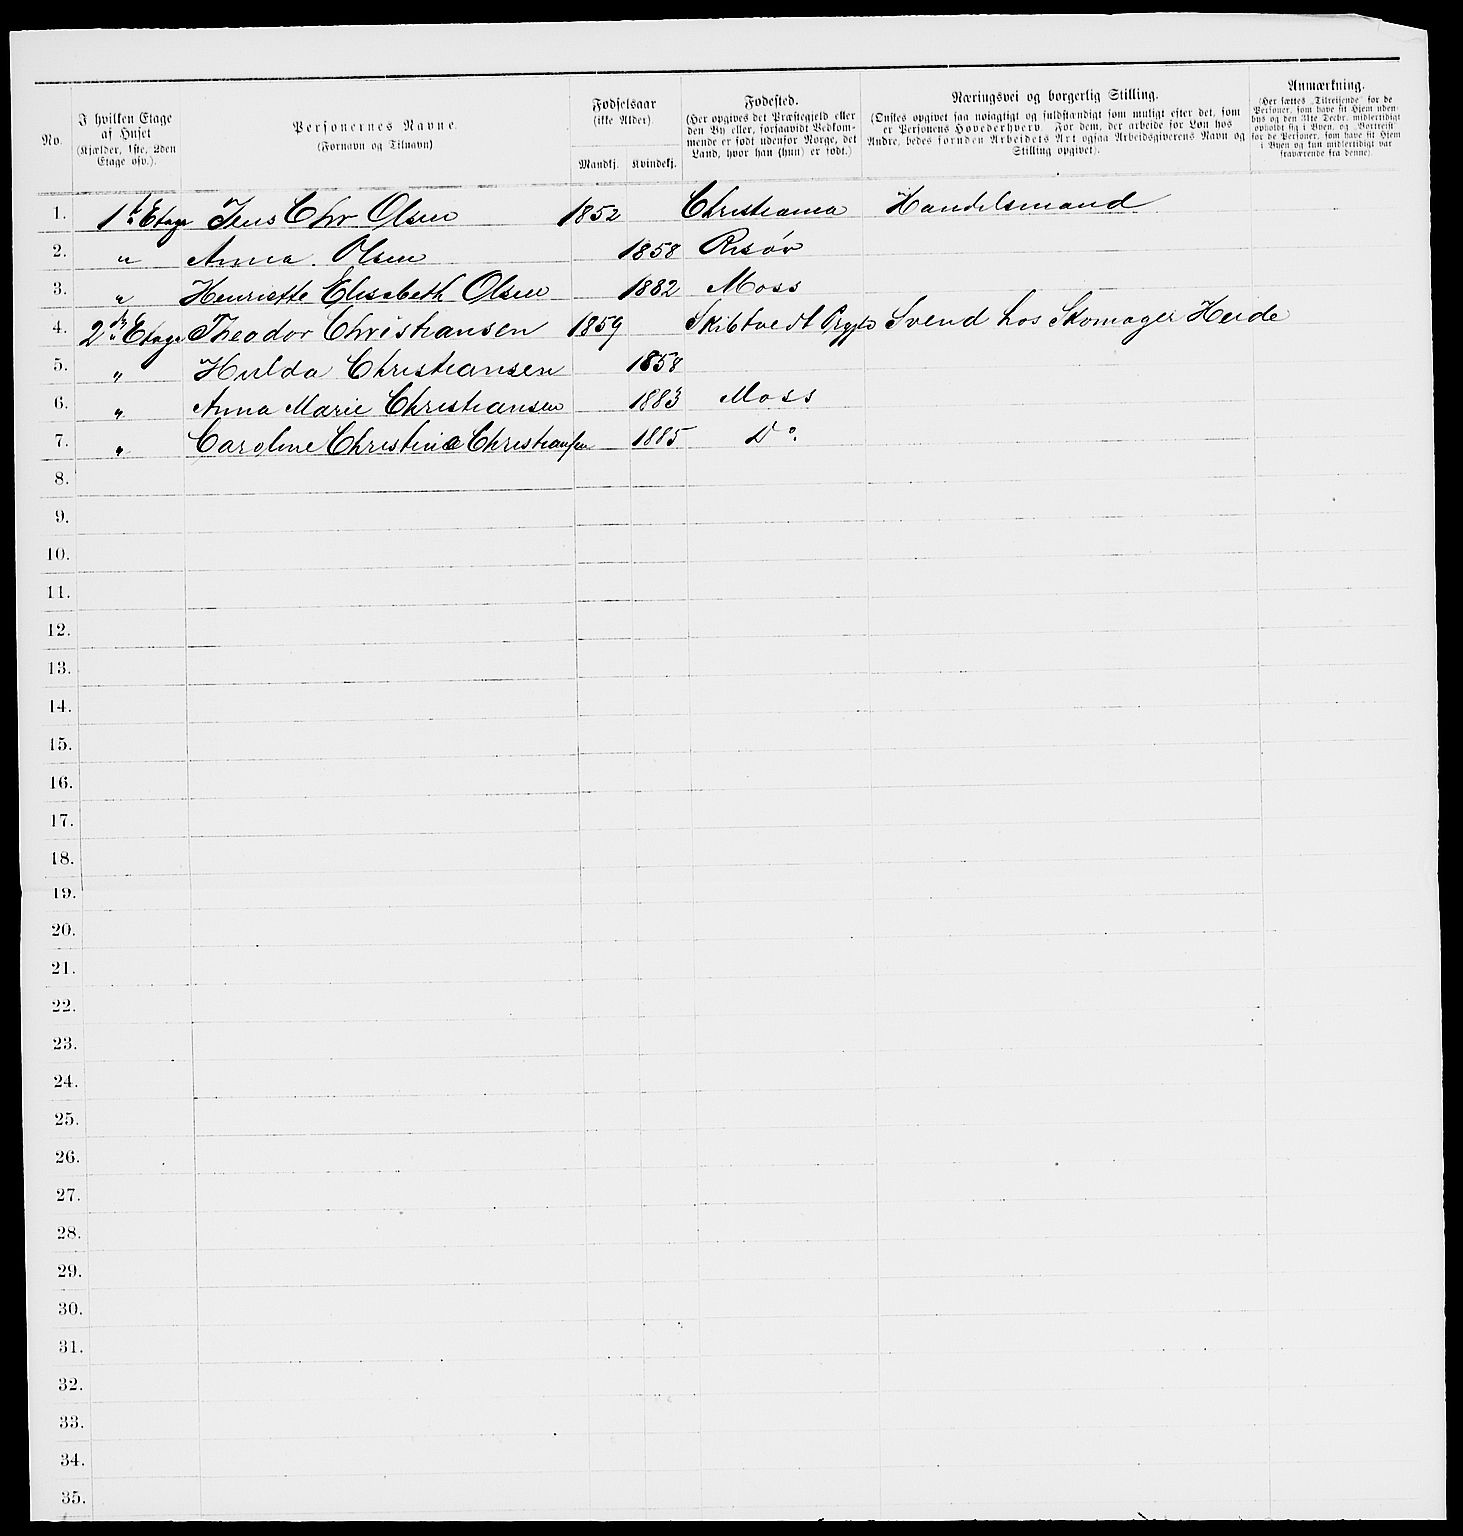 No.
I hvilken Etage
af Huset
(Kjælder, 1ste, 2den
Etage osv.).
Personernes Navne.
(Fornavn og Tilnavn)
Fødselsaar
(ikke Alder)
Mandkj. Kvindekj.
Fødested.
(Her opgives det Præstegjeld eller
den By eller, forsaavidt Vedkom-
mende er født udenfor Norge, det
Land, hvor han (hun) er født.)
Næringsvei og borgerlig Stilling.
(Ønskes opgivet saa nøiagtigt og fuldstændigt som muligt efter det, som
er Personens Hovederhverv. For dem, der arbeide for Løn hos
Andre, bedes foruden Arbeidets Art ogsaa Arbeidsgiverens Navn og
Stilling opgivet).
Anmærkning.
(Her sættes „Tilreisende“ for de
Personer, som have sit Hjem uden-
bys og den 31te Decbr. midlertidigt
opholdt sig i Byen, og „Bortreist“
for de Personer, som have sit Hjem
i Byen og kun midlertidigt var
fraværende fra denne).
1. 1ste Etage Jens Chr Olsen 1852 Christiania Handelsmand
2. " Anna Olsen 1858 Risør
3. " Henriette Elisabeth Olsen 1882 Moss
4. 2den Etage Theodor Christiansen 1859 Skibtvedt Prgjld Svend hos Skomager Heide
5. " Hulda Christiansen 1858
6. " Anna Marie Christiansen 1883 Moss
7. " Caroline Christine Christiansen 1885 Do.
8.
9.
10.
11.
12.
13.
14.
15.
16.
17.
18.
19.
20.
21.
22.
23.
24.
25.
26.
27.
28.
29.
30.
31.
32.
33.
34.
35.